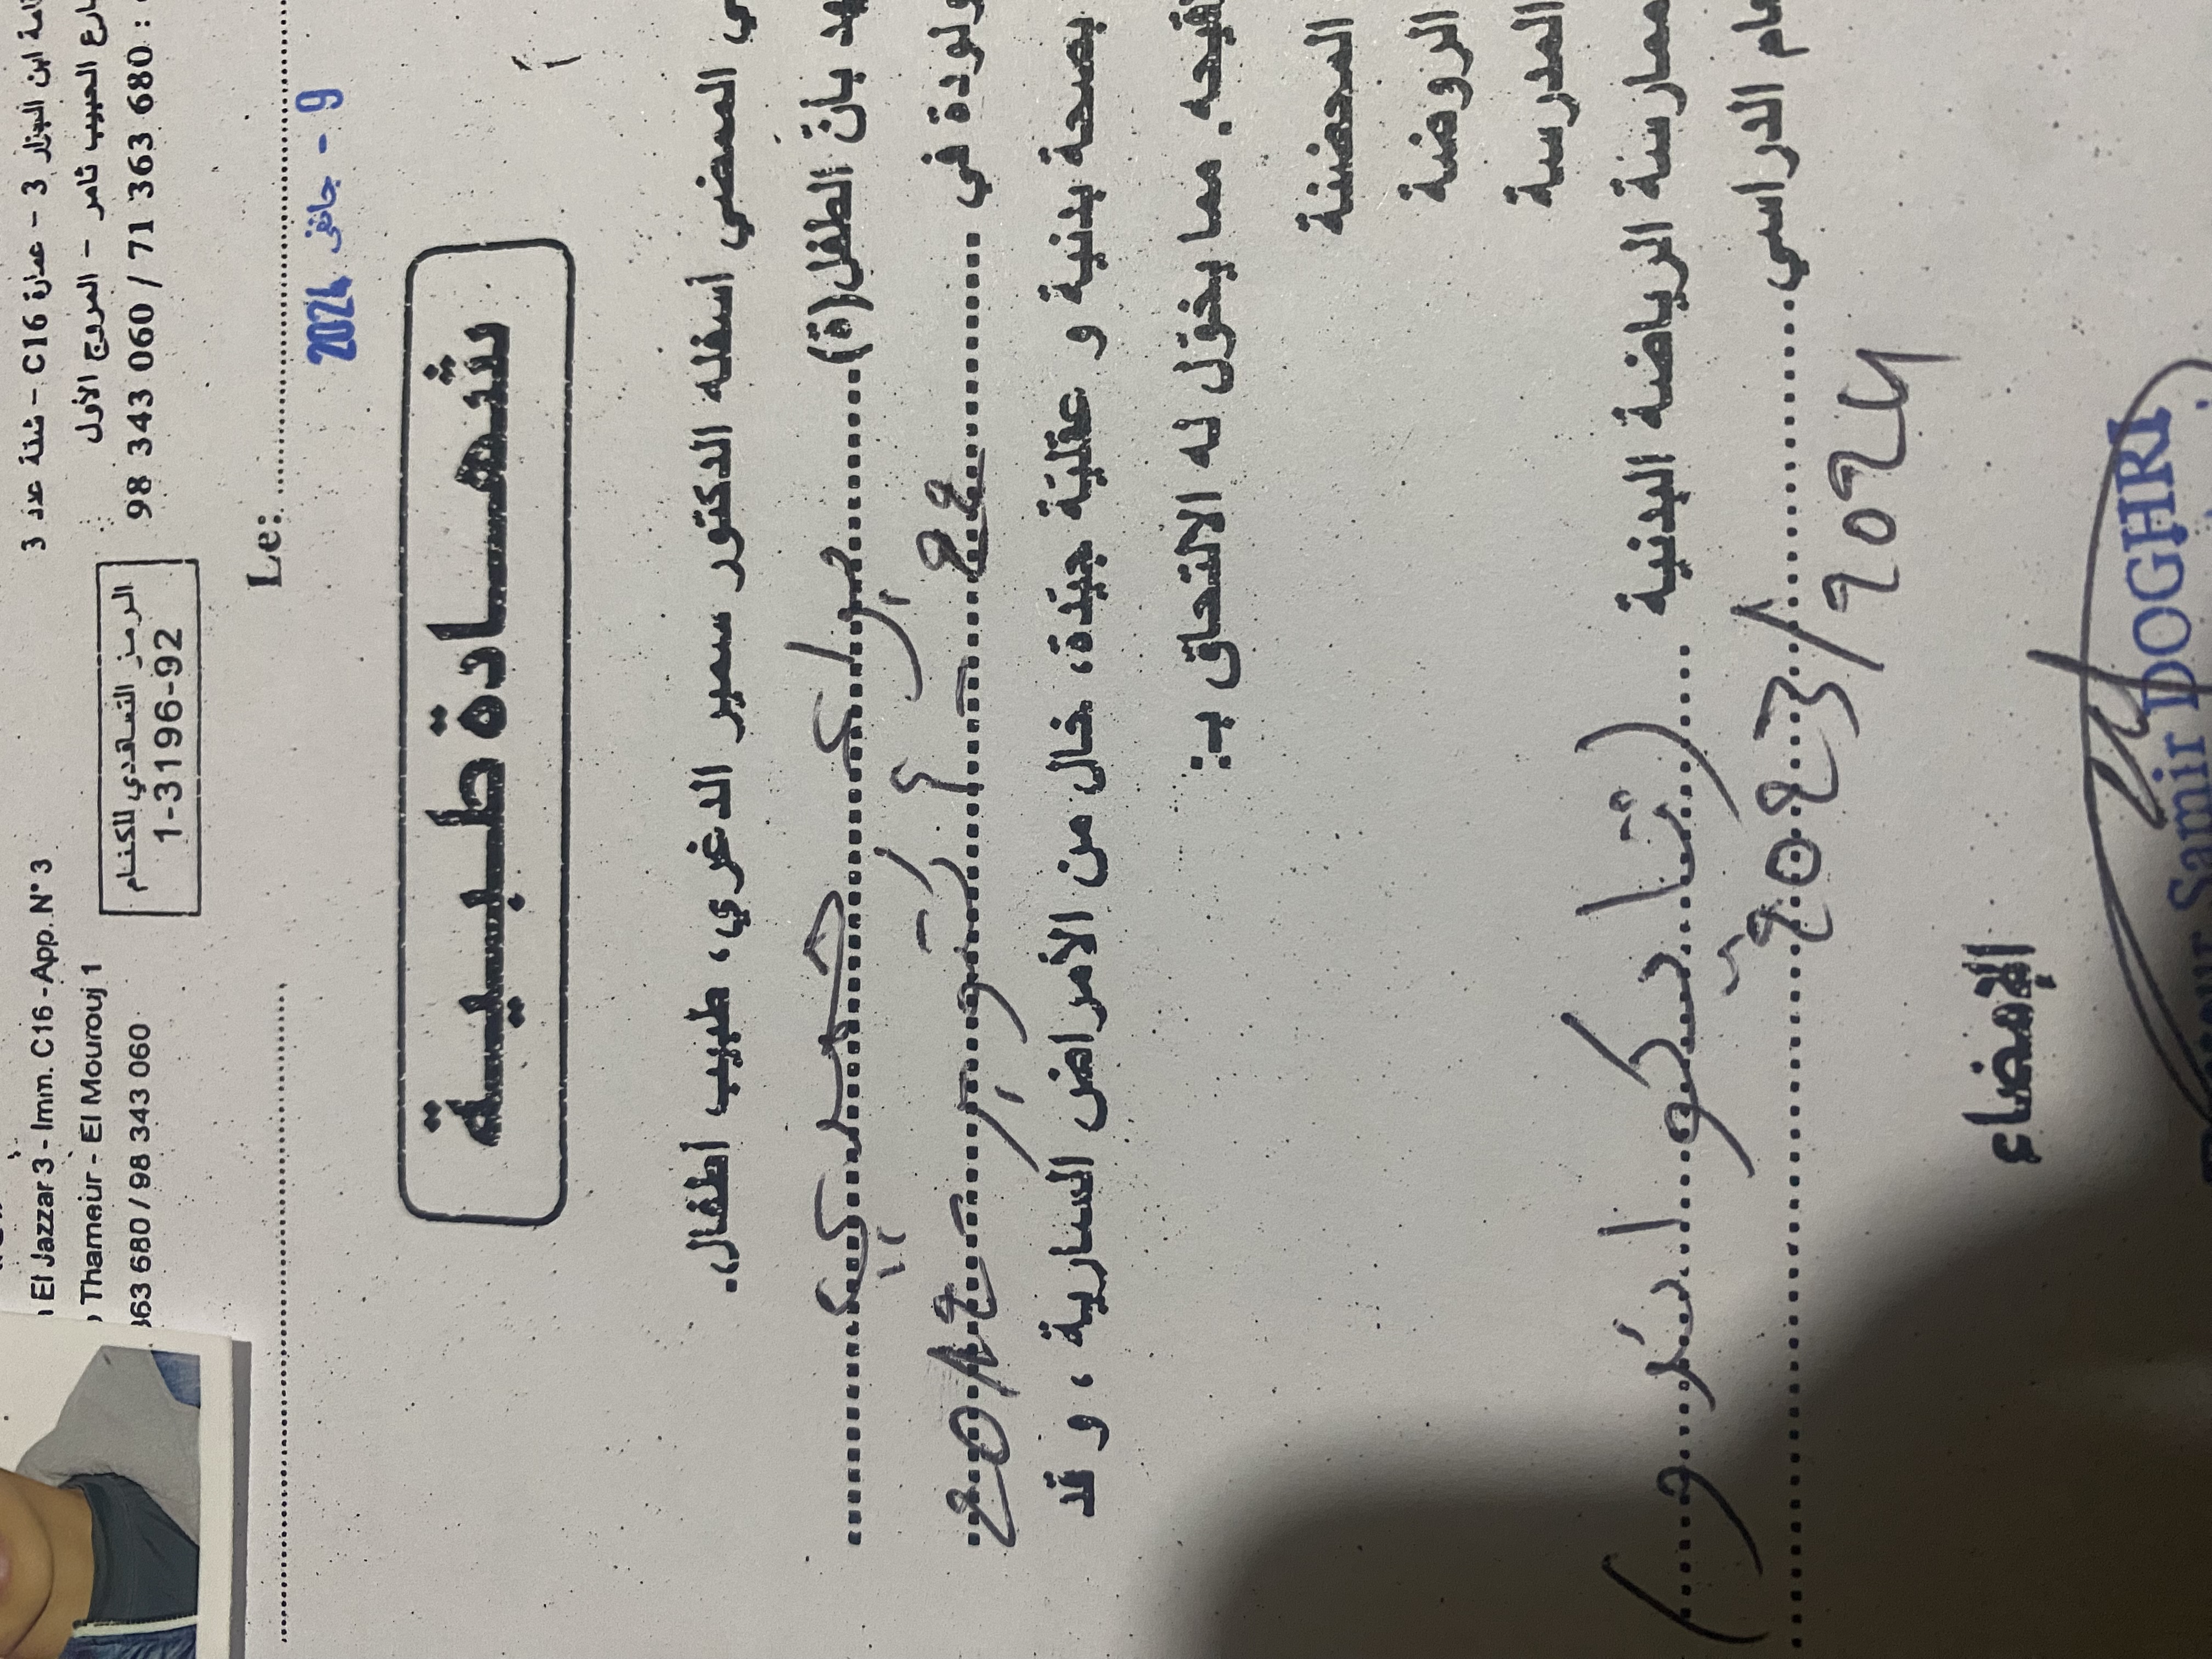 ابن الجزار 3 - عمارة C16 - شقة عدد 3
El Jazzar 3 - Imm. C16 - App. N° 3
الحبيب ثامر - المروج الأول
Thameur - El Mourouj 1
98 343 060 / 71 363 680 :
363 680 / 98 343 060
الرمز التعهدي للكنام
1-3196-92
Le:
9 - جانفي 2024
شهادة طبية
الممضي أسفله الدكتور سمير الدغري، طبيب أطفال.
بأن الطفل(ة)
في 22 أكتوبر
بصحة بدنية و عقلية جيّدة، خال من الأمراض السارية ، و قد
مما يخوّل له الالتحاق بـ:
المحضنة
الروضة
المدرسة
ممارسة الرياضة البدنية (تايكواندو)
الدراسي 2023/2024
الإمضاء
Samir DOGHRI